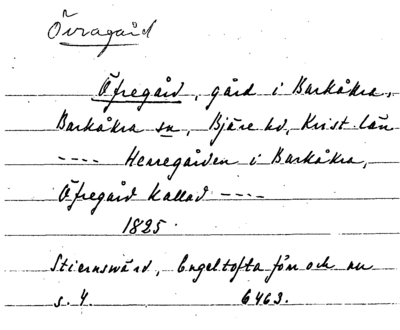 Övragård
Öfregård, gård i Barkåkra,
Barkåkra sn, Bjäre hd, Krist. län
---- Herregården i Barkåkra,
Öfregård kallad ----
1825.
Stiernswärd, Engeltofta förr och nu
s. 4. 6463.